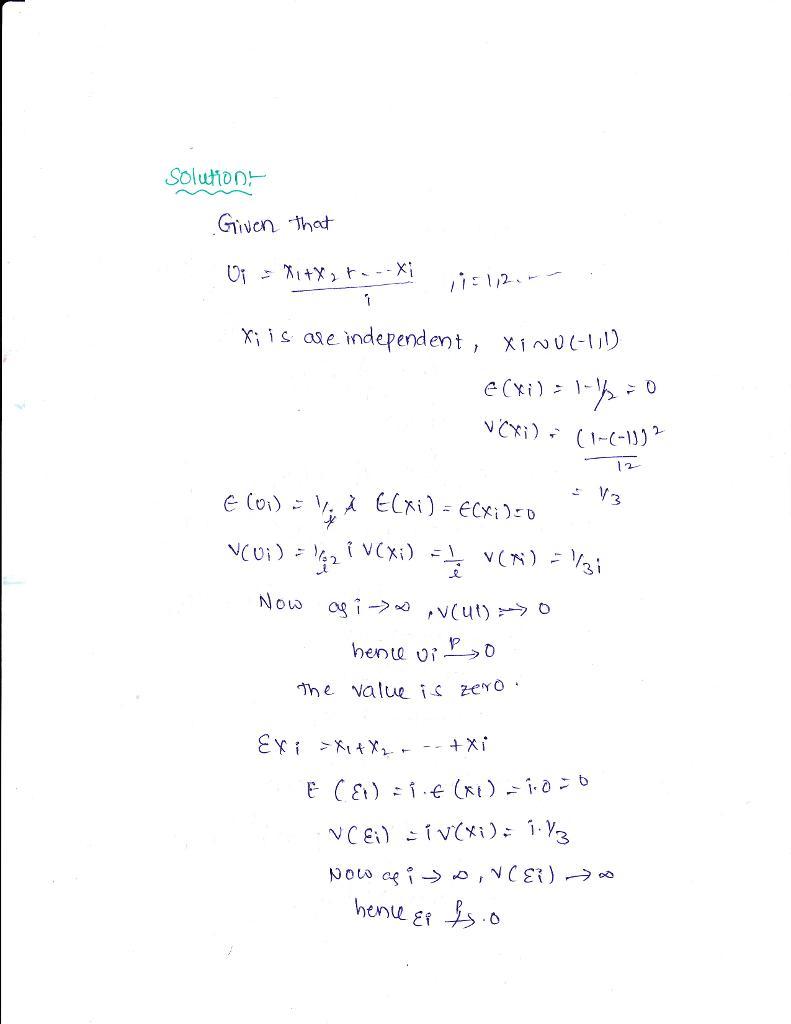 Solution:-
Given that
Ui = X1+X2+----Xi / i , i=1,2,----
Xi is are independent, Xi ~ U(-1,1)
E(Xi) = 1-1/2 = 0
V(Xi) = (1-(-1))² / 12
= 1/3
E(Ui) = 1/i i E(Xi) = E(Xi)=0
V(Ui) = 1/i² i V(Xi) = 1/i V(Xi) = 1/3i
Now as i→∞, V(Ui) → 0
hence Ui P→ 0
The value is zero.
Exi = X1+X2 - --- +Xi
E(Ei) = i.E(Xi) = i.0 = 0
V(Ei) = iV(Xi) = i.1/3
Now as i→∞, V(Ei) → ∞
hence Ei